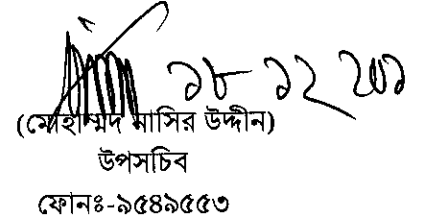 ১৮-১২ ২০১
(মোহাম্মদ নাসির উদ্দীন)
উপসচিব
ফোনঃ-৯৫৪৯৫৫৩